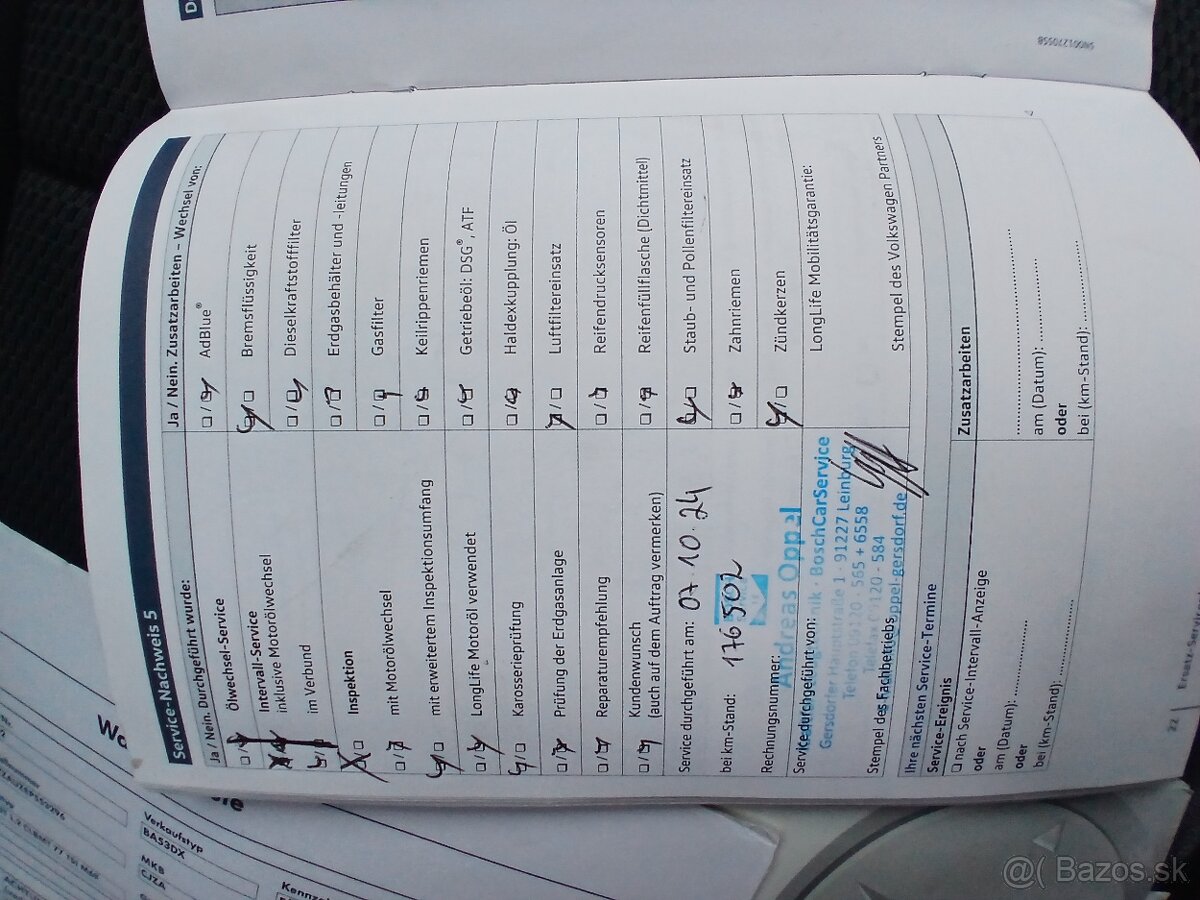 Service-Nachweis 5
Ja / Nein. Durchgeführt wurde:
Ölwechsel-Service
Intervall-Service
inklusive Motorölwechsel
im Verbund
Inspektion
mit Motorölwechsel
mit erweitertem Inspektionsumfang
LongLife Motoröl verwendet
Karosserieprüfung
Prüfung der Erdgasanlage
Reparaturempfehlung
Kundenwunsch
(auch auf dem Auftrag vermerken)
Service durchgeführt am: 07.10.24
bei km-Stand: 176502
Rechnungsnummer:
Andreas Oppel
Service durchgeführt von:
BoschCarService
Gersdorfer Hauptstraße 1 · 91227 Leinburg
565 + 6558
120 - 584
Stempel des Fachbetriebs
oppel-gersdorf.de
Ja / Nein. Zusatzarbeiten – Wechsel von:
AdBlue®
Bremsflüssigkeit
Dieselkraftstofffilter
Erdgasbehälter und -leitungen
Gasfilter
Keilrippenriemen
Getriebeöl: DSG®, ATF
Haldexkupplung: Öl
Luftfiltereinsatz
Reifendrucksensoren
Reifenfüllflasche (Dichtmittel)
Staub- und Pollenfiltereinsatz
Zahnriemen
Zündkerzen
LongLife Mobilitätsgarantie:
Stempel des Volkswagen Partners
Ihre nächsten Service-Termine
Service-Ereignis
nach Service-Intervall-Anzeige
oder
am (Datum): ....................
oder
bei (km-Stand): ....................
Zusatzarbeiten
am (Datum): ....................
oder
bei (km-Stand): ....................
22
5N0012705SB
Verkaufstyp
BA53DX
MKB
CJZA
@( Bazos.sk